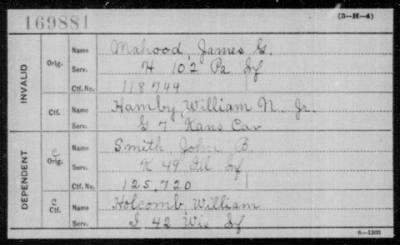 169881
(3-H-4)
INVALID
Orig.
Name Mahood, James G.
Serv. H 102 Pa Inf
Ctf. No. 118 744
Ctf.
Name Hamby, William N. Jr.
Serv. G 7 Kans Cav
DEPENDENT
C Orig.
Name Smith, John B.
Serv. K 49 Ill Inf
Ctf. No. 125,720
C Ctf.
Name Holcomb, William
Serv. I 42 Wis Inf